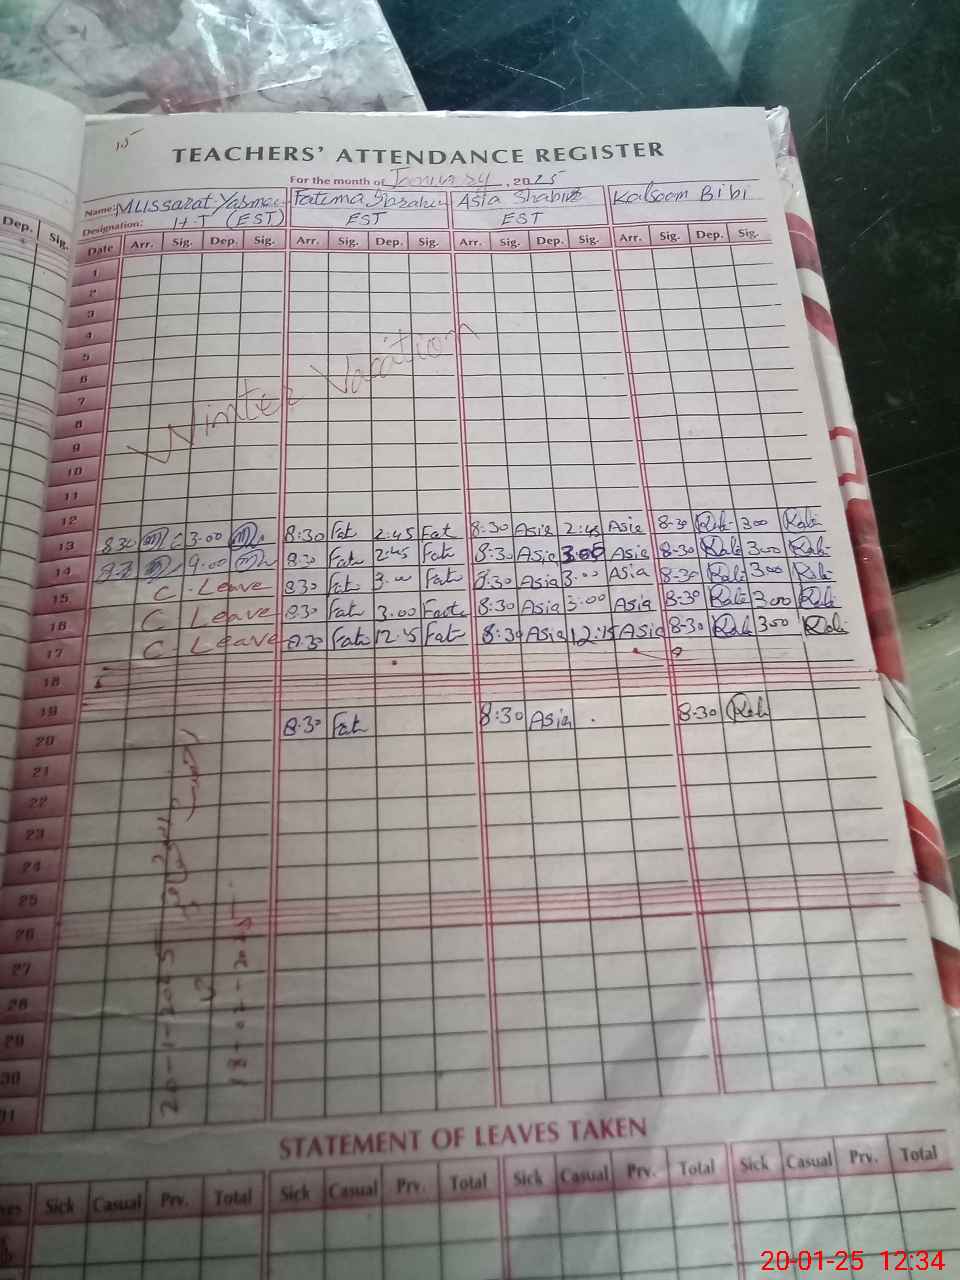 TEACHERS' ATTENDANCE REGISTER
For the month of January, 2025
Dep. Sig.
Name: Mussarat Yasmeen Fatima Asia Shabir Kalsoom Bibi
Designation: H.T (EST) EST EST
Date Arr. Sig. Dep. Sig. Arr. Sig. Dep. Sig. Arr. Sig. Dep. Sig. Arr. Sig. Dep. Sig.
1
2
3
4
5
6
7
8
9
10
11
Winter Vacation
12
13 8:30 3:00 8:30 Fat 2:45 Fat 8:30 Asia 2:45 Asia 8:30 Kal 3:00 Kal
14 9:00 8:30 Fat 2:45 Fat 8:30 Asia 3:00 Asia 8:30 Kal 3:00 Kal
15 C. Leave 8:30 Fat 3:00 Fat 8:30 Asia 3:00 Asia 8:30 Kal 3:00 Kal
16 C. Leave 8:30 Fat 3:00 Fat 8:30 Asia 3:00 Asia 8:30 Kal 3:00 Kal
17 C. Leave 8:30 Fat 12:15 Fat 8:30 Asia 12:15 Asia 8:30 Kal 3:00 Kal
18
19
20 8:30 Fat 8:30 Asia 8:30 Kal
21
22
23
24
25
26
27
28
29
30
31
20-1-2025
18-02-2025
STATEMENT OF LEAVES TAKEN
Sick Casual Prv. Total Sick Casual Prv. Total Sick Casual Prv. Total Sick Casual Prv. Total
20-01-25 12:34